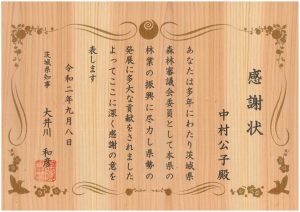 感謝状
中村公子殿
あなたは多年にわたり茨城県
森林審議会委員として本県の
林業の振興に尽力し県勢の
発展に多大な貢献をされました
よってここに深く感謝の意を
表します
令和二年九月八日
茨城県知事 大井川和彦